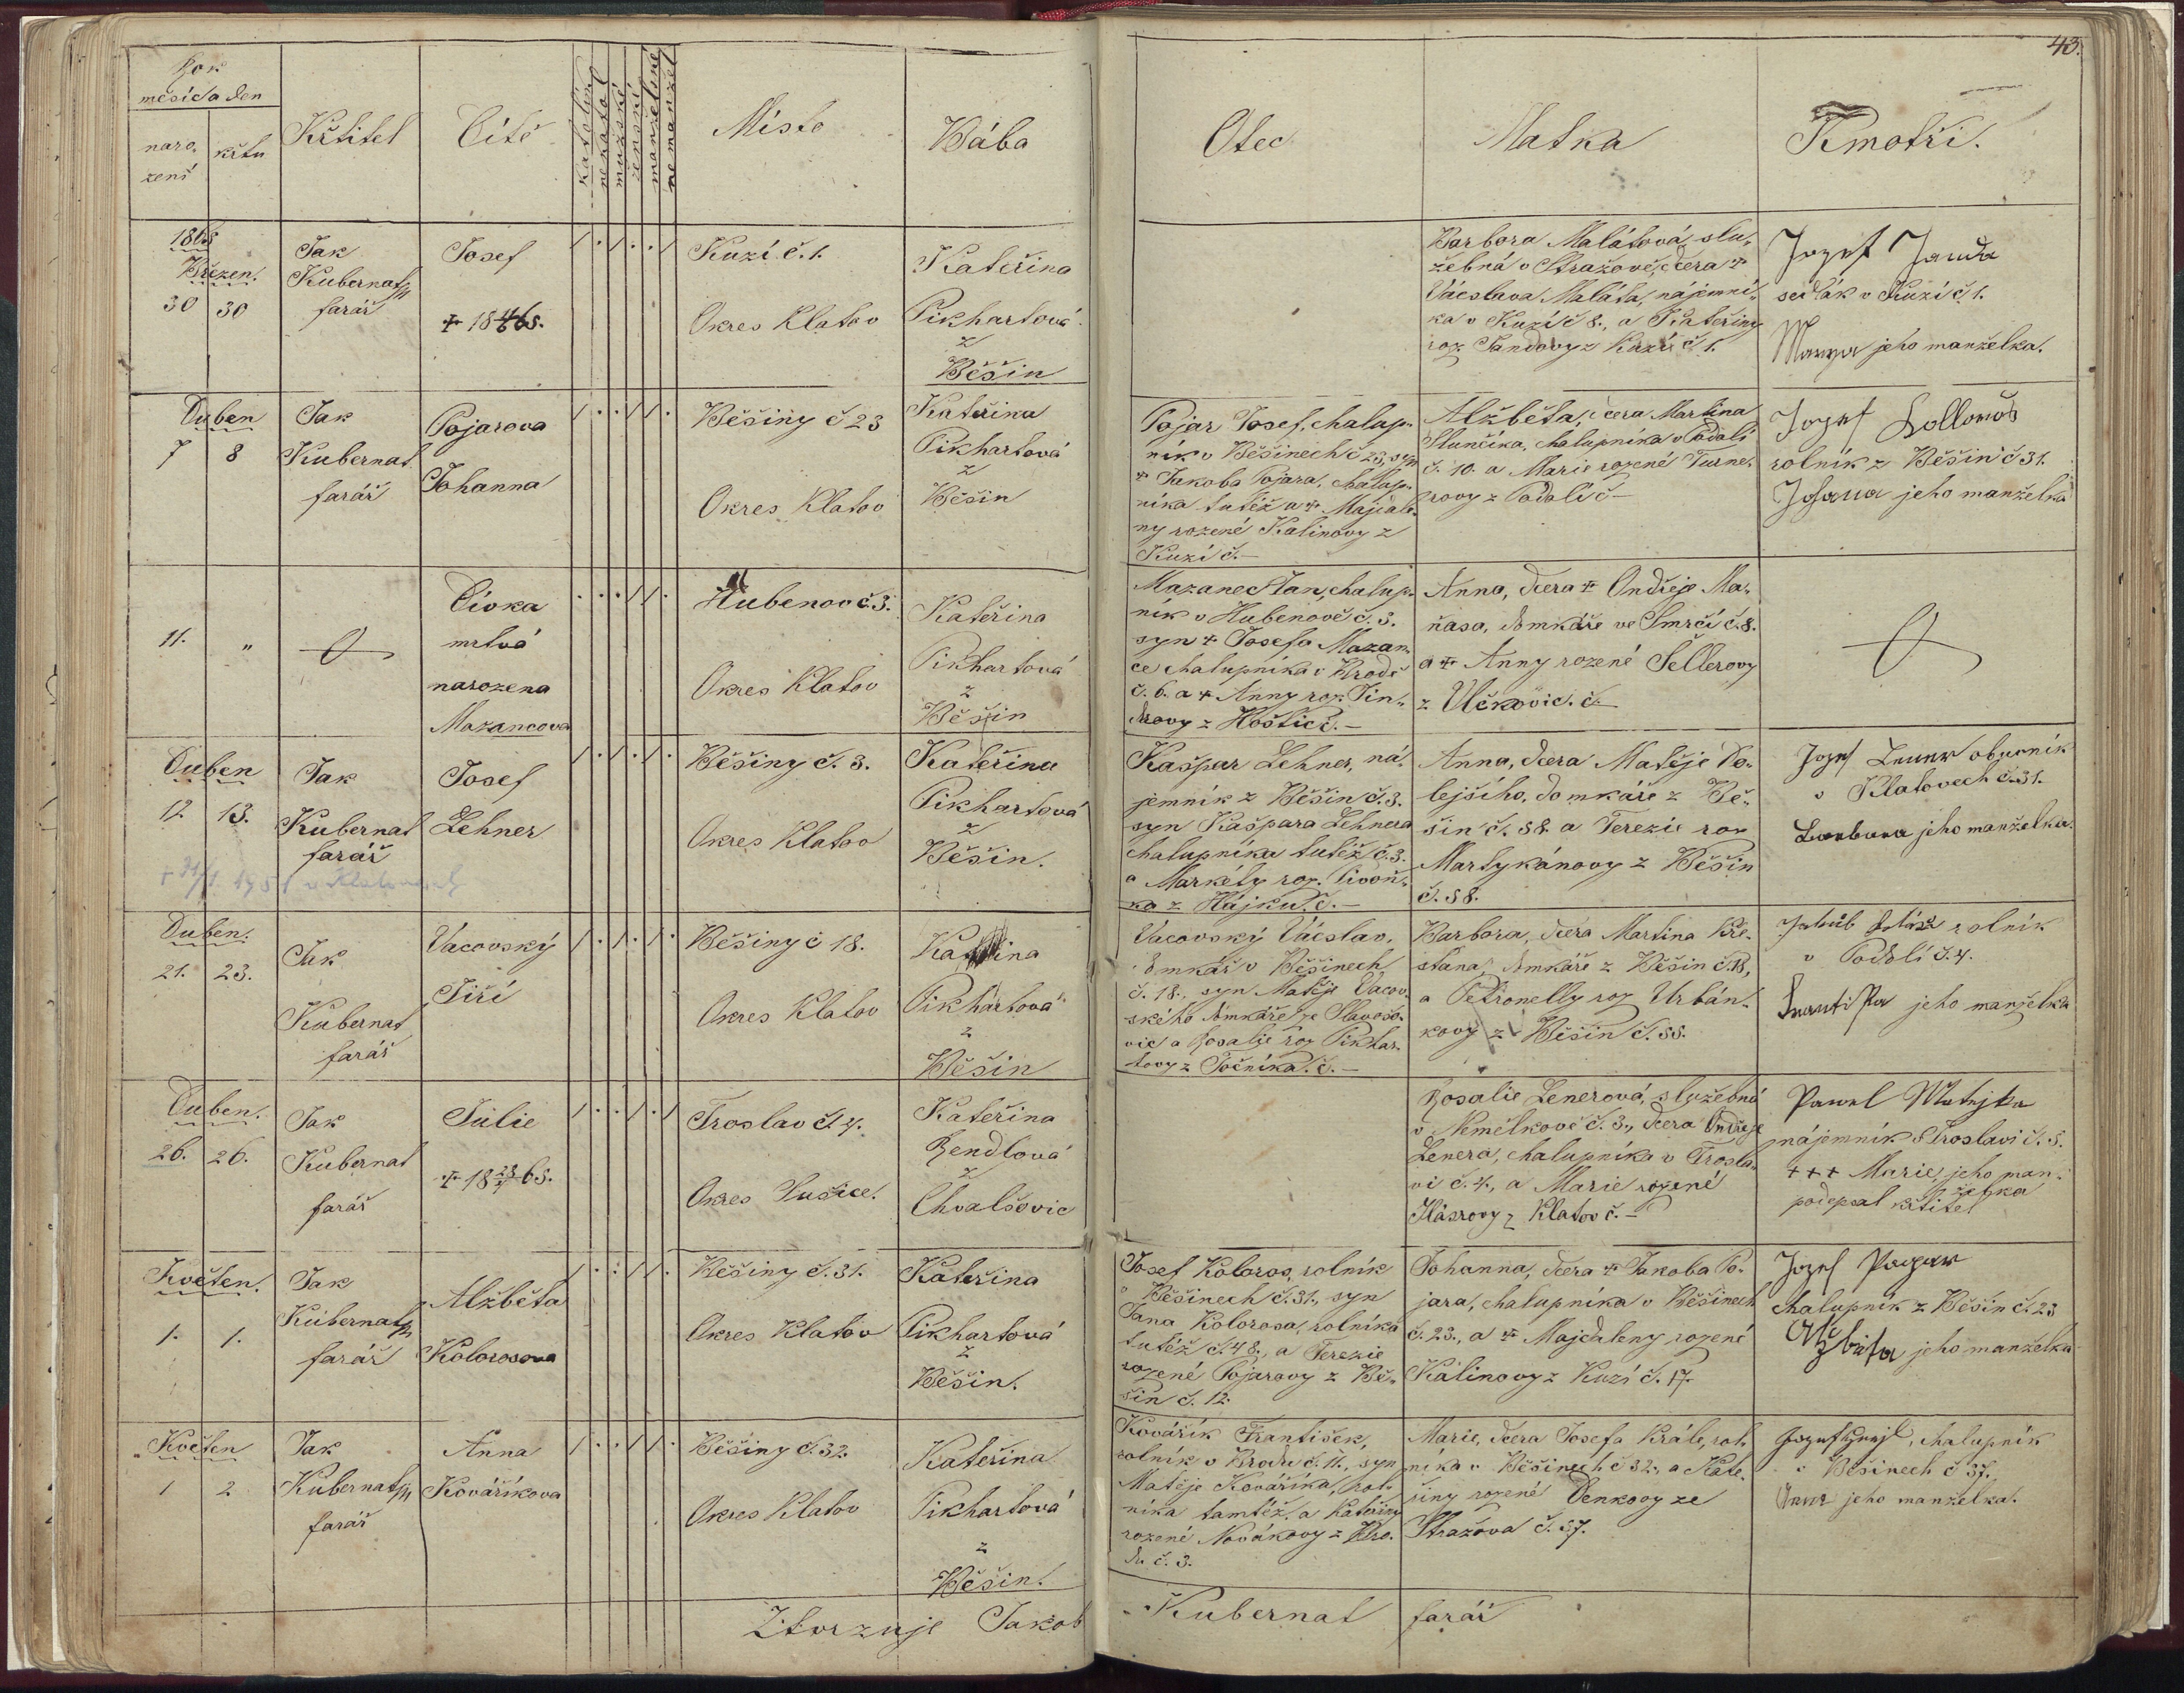 43.
Rok
měsíc a den
naro.
zení
křtu
Křtitel
Dítě
katolické
nekatol
mužské
ženské
manželské
nemanžel
Místo
Bába
Otec
Matka
Kmotři.
1865
Březen.
30 30
Jak
Kubernat
farář
Josef
Kuzí č. 1.
Okres Klatov
Kateřina
Pikhartová
z
Běšin
Barbora Malátová, slu-
žebná v Stražově, dcera +
Václava Maláta, nájemní-
ka v Kuzí č 8., a Kateřiny
roz. Jandovy z Kuzí č 1.
Jozef Janda
sedlák v Kuzí č 1.
Marya jeho manželka.
Duben
7 8
Jak
Kubernat
farář
Pojarova
Johanna
Běšiny č 23
Okres Klatov
Kateřina
Pikhartová
z
Běšin
Pojar Josef, chalup-
ník v Běšinech č 23, syn
+ Jakoba Pojara, chalup-
níka tutéž a + Majdale-
ny rozené Kalinovy z
Kuzí č. —
Alžběta, dcera Martina
Slunčíka, chalupníka v Podolí
č. 10. a Marie rozené Turne-
rovy z Podolí č —
Jozef Kolloroš
rolník z Běšin č 31.
Johana jeho manželka
11. "
Dívka
mrtvá
narozena
Mazancova
Hubenov č. 3.
Okres Klatov
Kateřina
Pikhartová
z
Běšin
Mazanec Jan, chalup-
ník v Hubenově č. 3.
syn + Josefa Mazan-
ce chalupníka v Brodě
č. 6. a + Anny roz.
z Hoštic č. —
Anna, dcera + Ondřeje Ma-
ňasa, domkáře ve Smrčí č. 8.
a + Anny rozené Šellerovy
z Vlčkovic. č —
Duben
12. 13.
Jak
Kubernat
farář
Josef
Lehner
Běšiny č. 3.
Okres Klatov
Kateřina
Pikhartová
z
Běšin.
Kašpar Lehner, ná-
jemník z Běšin č. 3.
syn Kašpara Lehnera
chalupníka tutéž č. 3.
a Markéty roz. Pivoň-
ka z Hájku. č. —
Anna, dcera Matěje Do-
lejšího, domkáře z Bě-
šin č. 58. a Terezie roz
Martykánovy z Běšin
č. 58.
Jozef obuvník
v Klatovech č. 31.
Barbora jeho manželka.
1951 v Klatovech
Duben.
21. 23.
Jak
Kubernat
farář
Vacovský
Jiří
Běšiny č 18.
Okres Klatov
Kateřina
Pikhartová
z
Běšin
Vacovský Václav,
domkář v Běšinech
č. 18., syn Matěje Vacov-
ského domkáře ze Slavošo-
vic a Rosalie roz Pikhar-
tovy z Točníka. č. —
Barbora, dcera Martina Kře-
stana, domkáře z Běšin č. 18,
a Petronelly roz Urbán-
kovy z Běšin č. 55.
Jakub rolník
v Podolí č. 4.
Františka jeho manželka
Duben.
26. 26.
Jak
Kubernat
farář
Julie
Troslav č. 4.
Okres Sušice.
Kateřina
Rendlová
z
Chvalšovic
Rosalie Lenerová, služebná
v Nemělkově č. 3., dcera Ondřeje
Lenera, chalupníka v Trosla-
vi č. 4., a Marie rozené
z Klatov č. —
Pawel Matejka
nájemník v Troslavi č. 5.
+++ Marie, jeho man-
želka
podepsal křtitel
Květen.
1. 1.
Jak
Kubernat
farář
Alžběta
Kolorosova
Běšiny č. 31.
Okres Klatov
Kateřina
Pikhartová
z
Běšin.
Josef Koloros, rolník
v Běšinech č. 31., syn
Jana Kolorosa, rolníka
tutéž č. 48., a Terezie
rozené Pojarovy z Bě-
šin č. 12.
Johanna, dcera + Jakoba Po-
jara, chalupníka v Běšinech
č. 23., a + Majdaleny rozené
Kalinovy z Kuzí č. 17.
Jozef Pogar
chalupník z Běšin č. 23
Alžbita jeho manželka
Květen
1 2
Jak
Kubernat
farář
Anna
Kováříkova
Běšiny č. 32.
Okres Klatov
Kateřina
Pikhartová
z
Běšin.
Kovářík František,
rolník v Brodu č. 11., syn
Matěje Kováříka, rol-
níka tamtéž, a Kateřiny
rozené Novákovy z Bro-
du č. 3.
Marie, dcera Josefa Krále, rol-
níka v Běšinech č 32., a Kate-
řiny rozené Denkovy ze
Stražova č. 37.
Jozef, chalupník
v Běšinech č 37.,
Anna jeho manželka.
Ztvrzuje Jakob
Kubernat farář